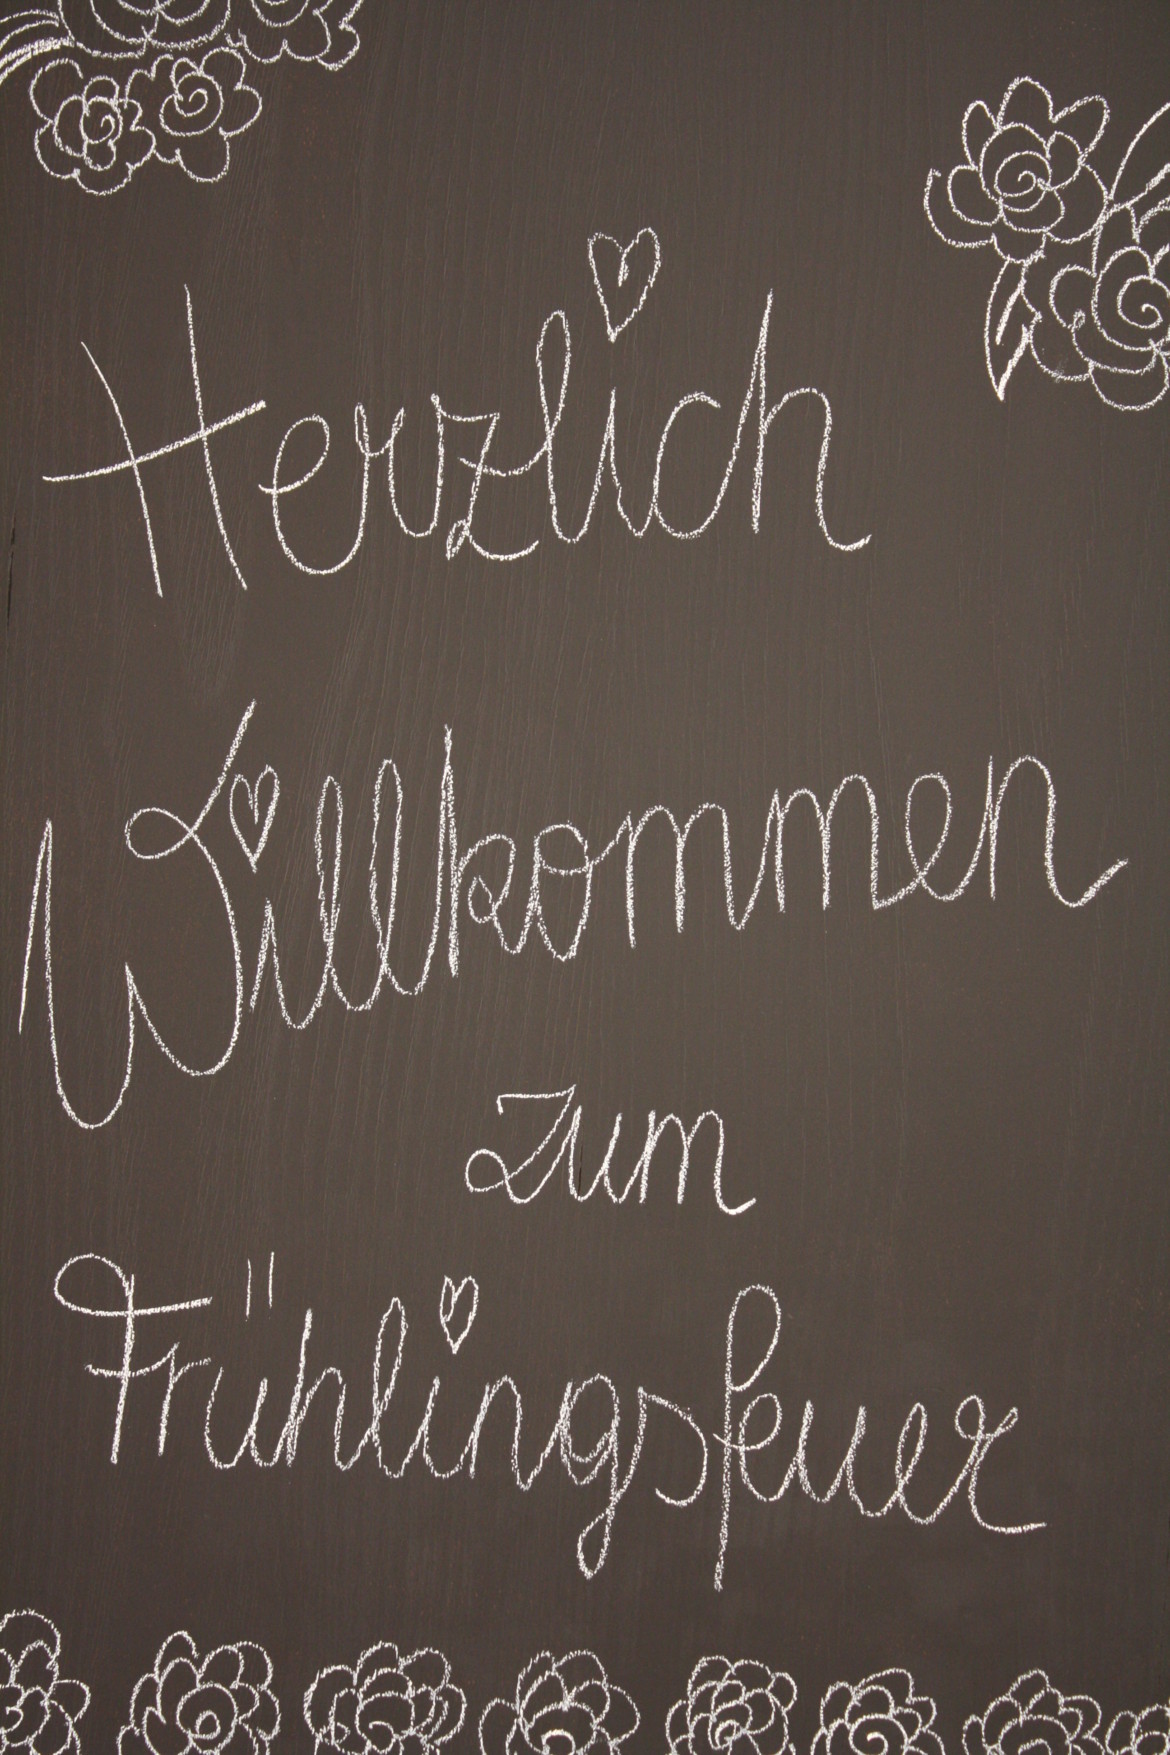 Herzlich
Willkommen
zum
Frühlingsfeuer